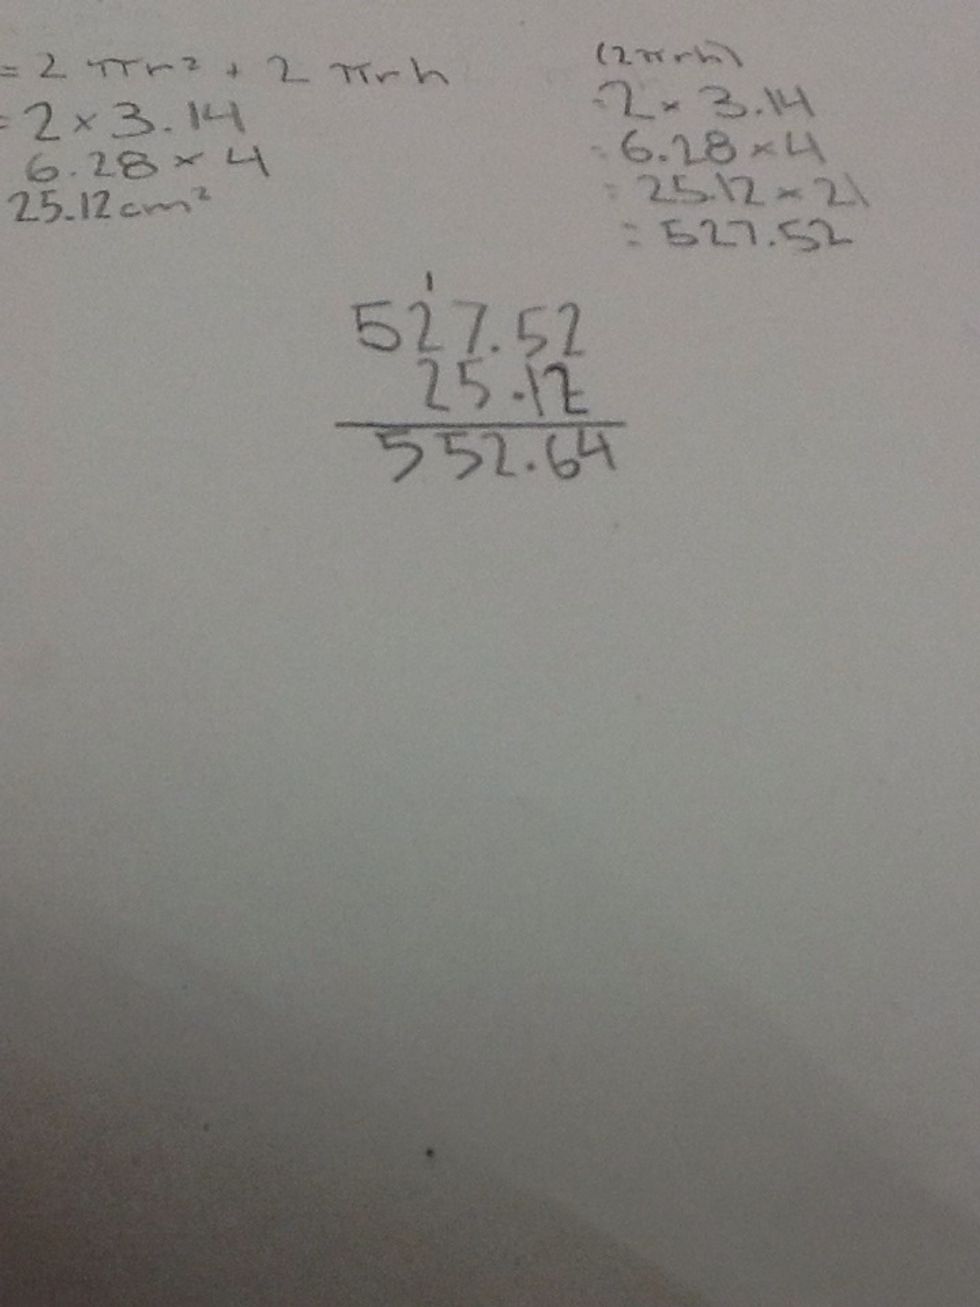 = 2 πr² + 2 πrh
= 2 × 3.14
6.28 × 4
25.12cm²
(2πrh)
= 2 × 3.14
= 6.28 × 4
= 25.12 × 21
= 527.52
1
527.52
25.12
552.64